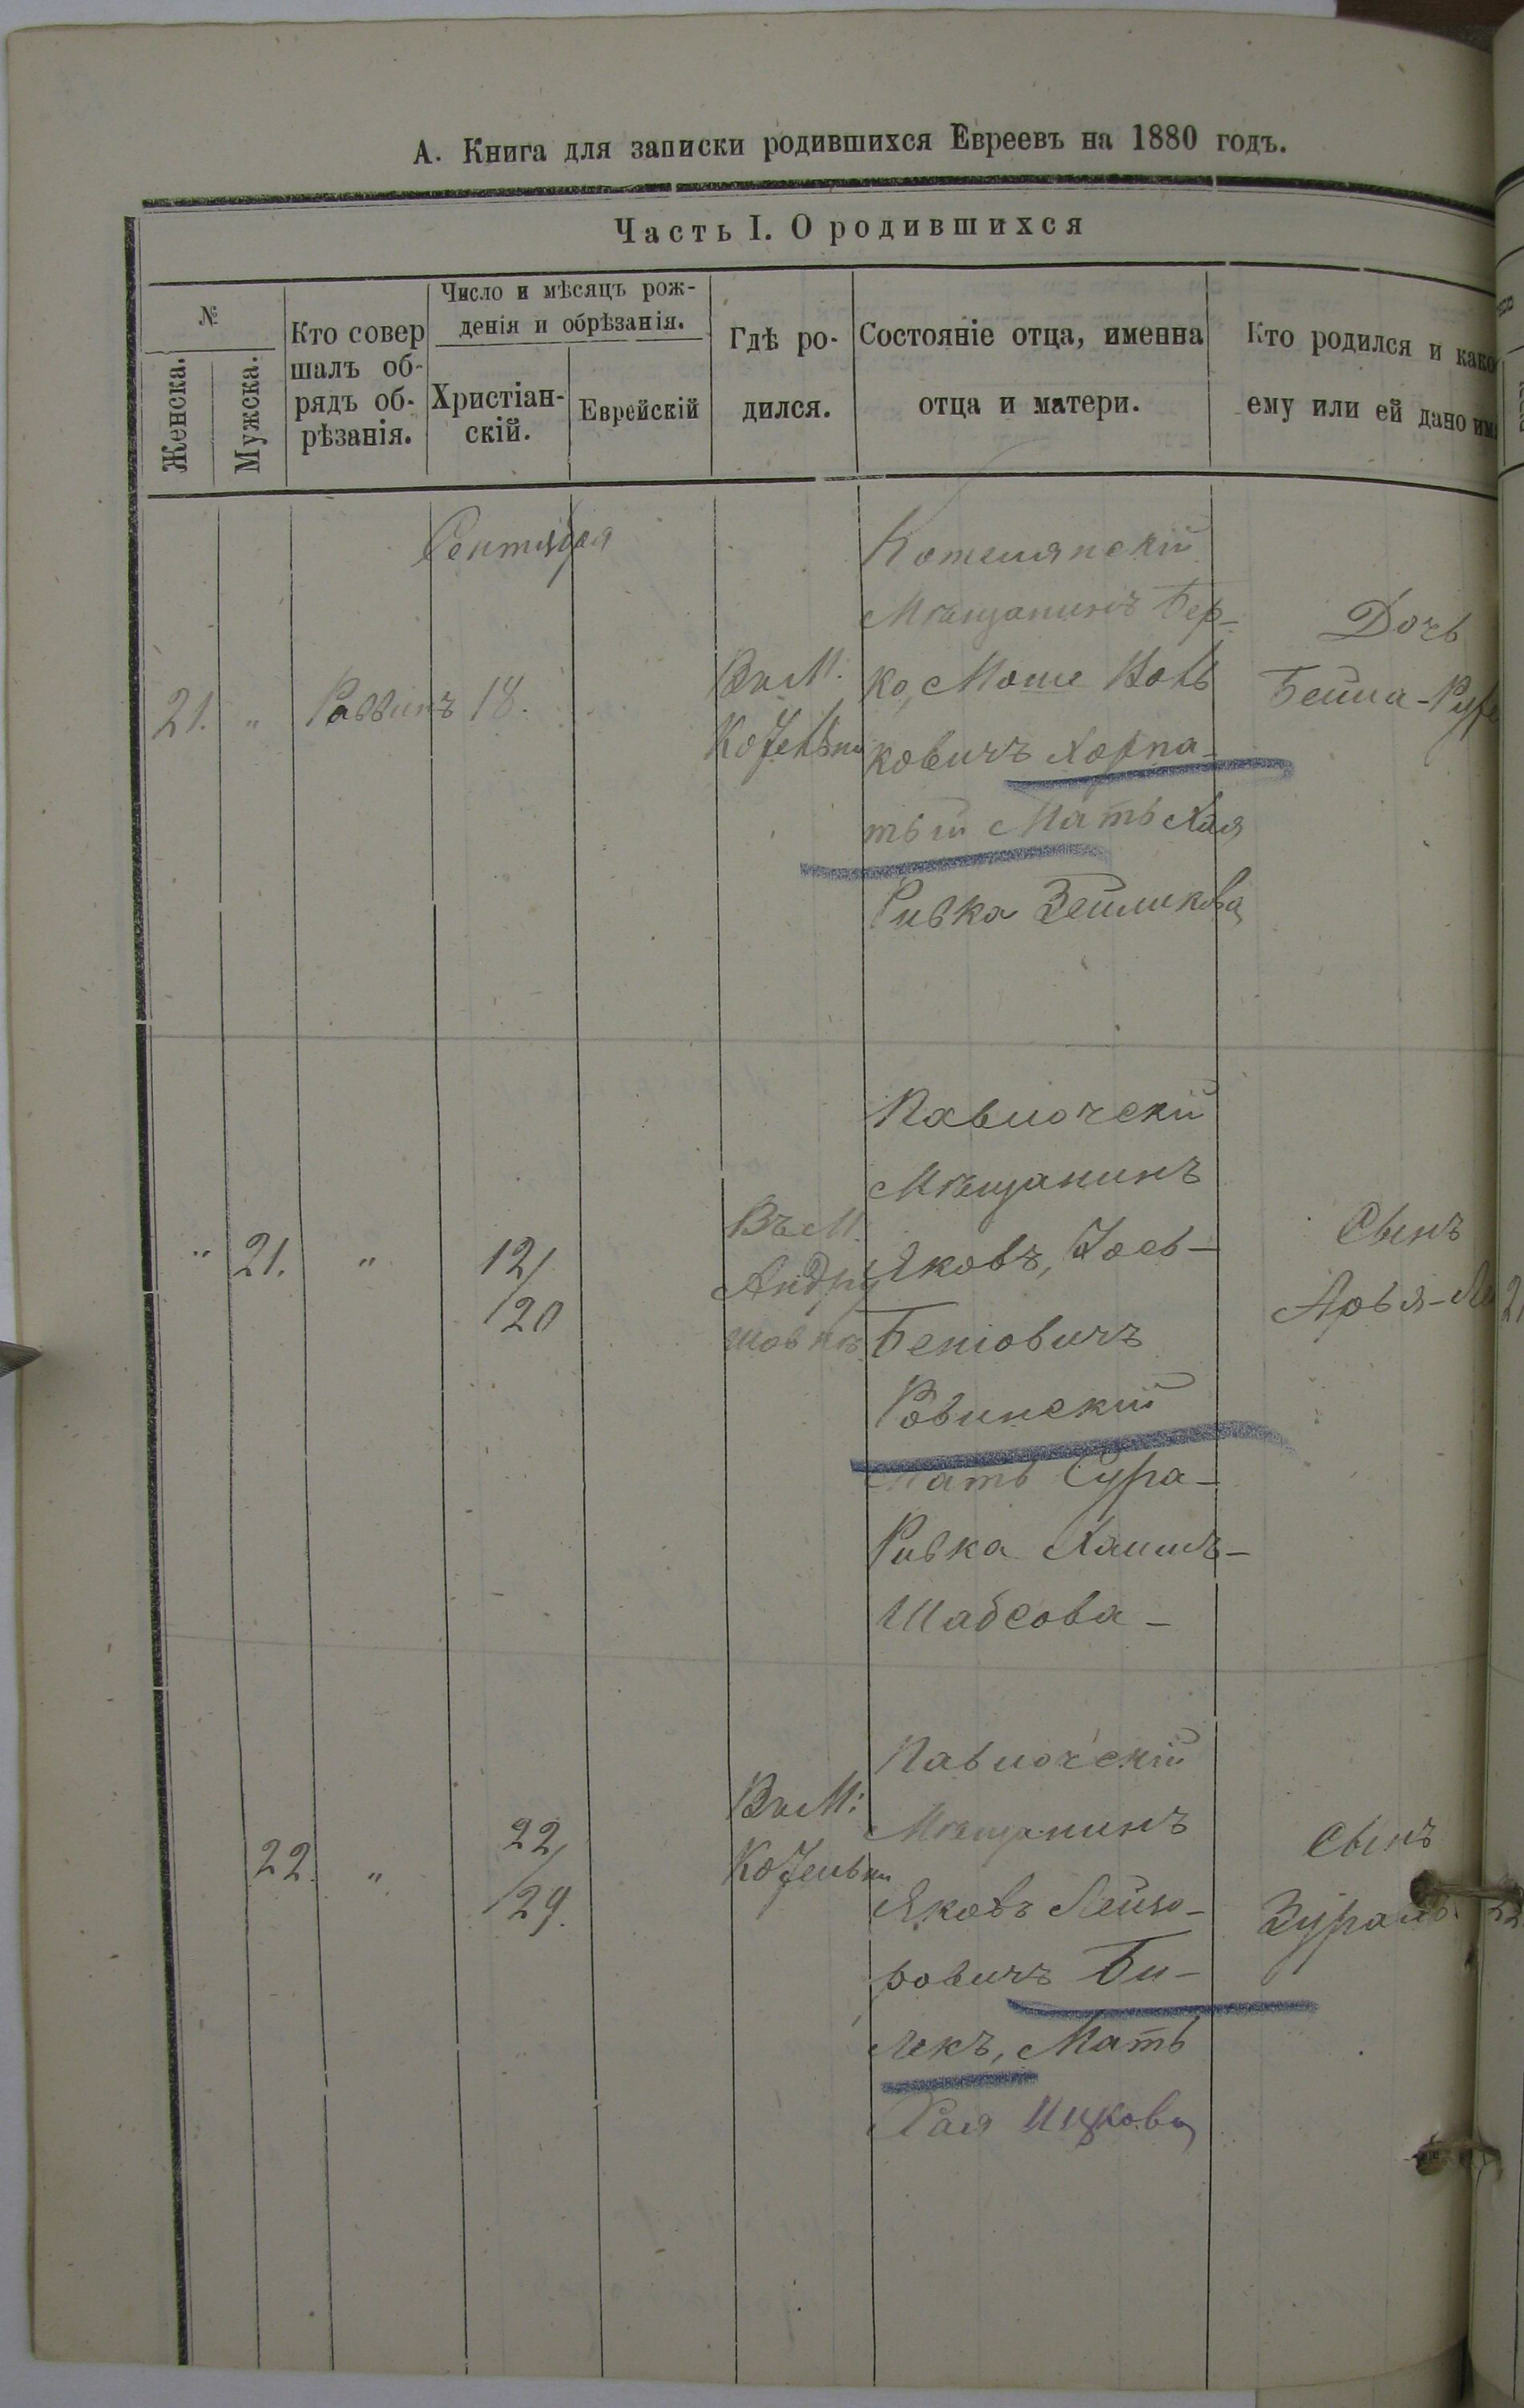 А. Книга для записки родившихся Евреевъ на 1880 годъ.
Часть I. О родившихся
№
Женска.
Мужска.
Кто совер
шалъ об-
рядъ об-
рѣзанія.
Число и мѣсяцъ рож-
денія и обрѣзанія.
Христіан-
скій.
Еврейскій
Гдѣ ро-
дился.
Состояніе отца, именна
отца и матери.
Кто родился и како
ему или ей дано им
Сентября
21. " Раввинъ 18.
Въ М.
Котельни
Мѣщанинъ Бер-
ко, Моше Воль
ковичъ Хорпа-
тый Мать Хая
Ривка Зейликова
Дочь
Бейла-
" 21. " 12/
20
Въ М.
Андру
шовкѣ
Паволочскій
Мѣщанинъ
Яковъ, Іось-
Беніовичъ
Ровинскій
Мать Сура-
Ривка Хаимъ-
Шабсова-
Сынъ
Арья-
22. " 22/
29.
Въ М:
Котельни
Паволочскій
Мѣщанинъ
Яковъ Лейзо-
ровичъ Би-
лекъ, Мать
Хая Ицкова
Сынъ